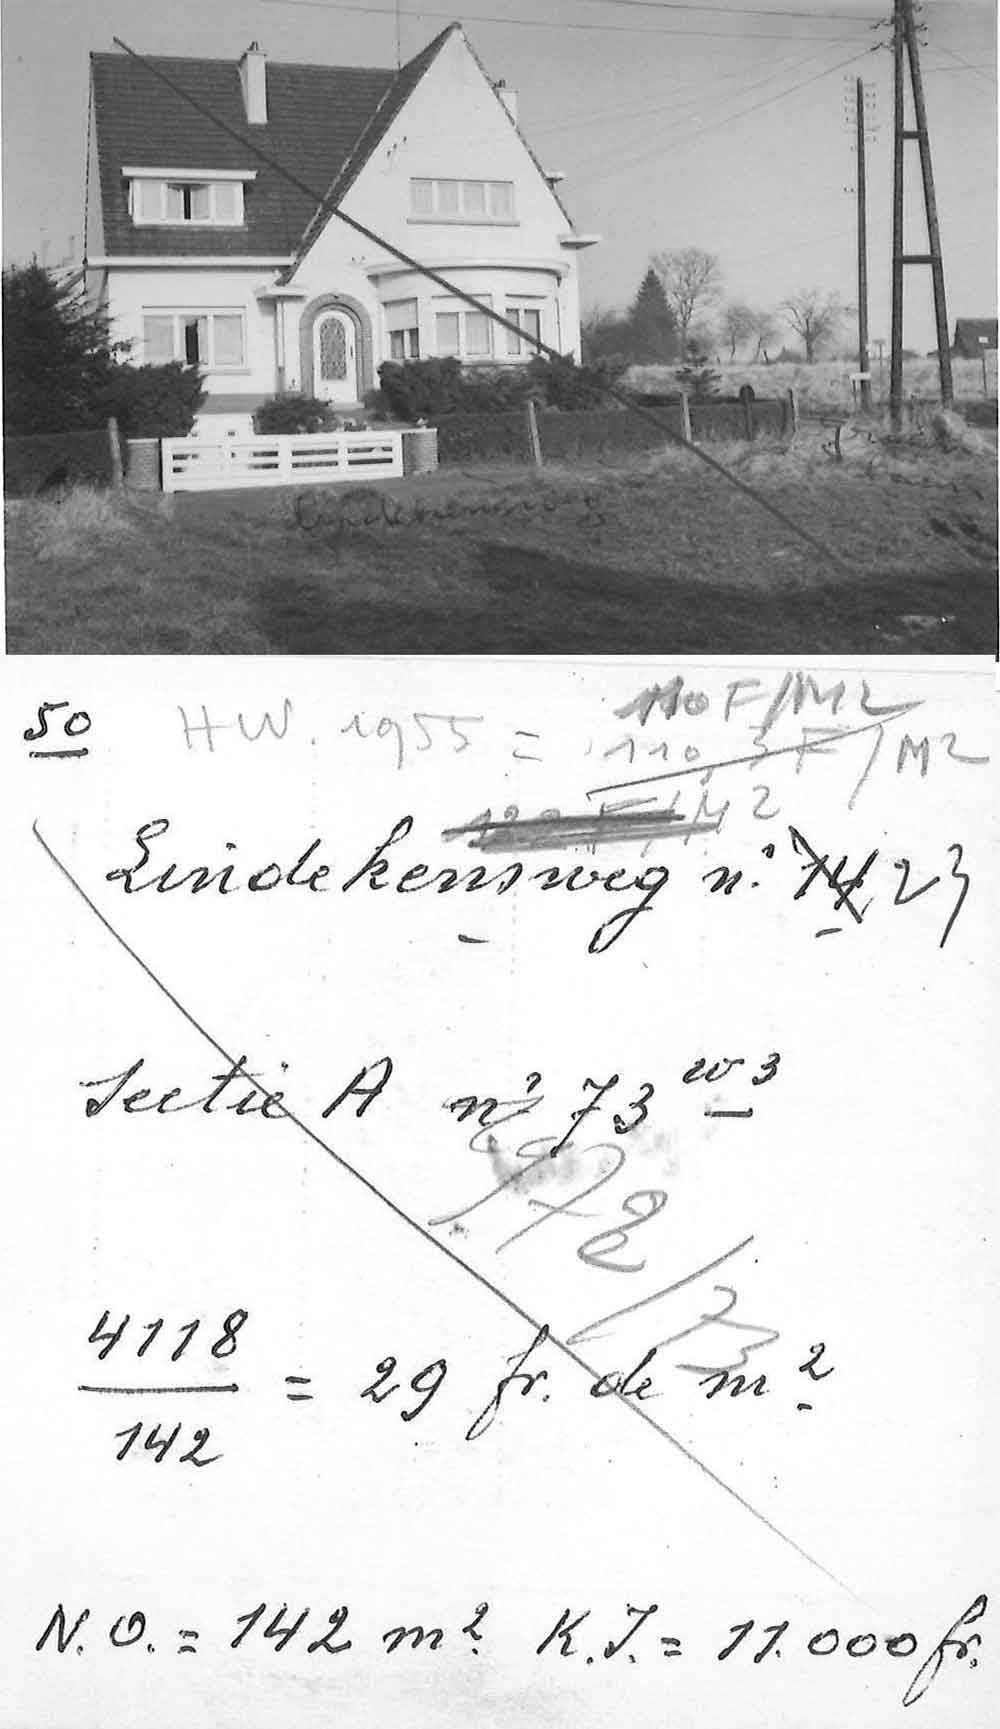 Lindekensweg
50 HW. 1955 = 110 F/M2
110,3 F/M2
122 F/M2
Lindekensweg n° 74 23
Sectie A n° 73 w3
978/73
4118
142
= 29 fr. de m²
N.O. = 142 m² K.I. = 11.000 fr.